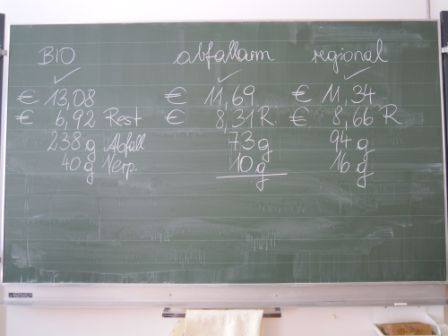 BIO abfallarm regional
€ 13,08 € 11,69 € 11,34
€ 6,92 Rest € 8,31 R. € 8,66 R
238 g Abfall 73 g 94 g
40 g Verp. 10 g 16 g